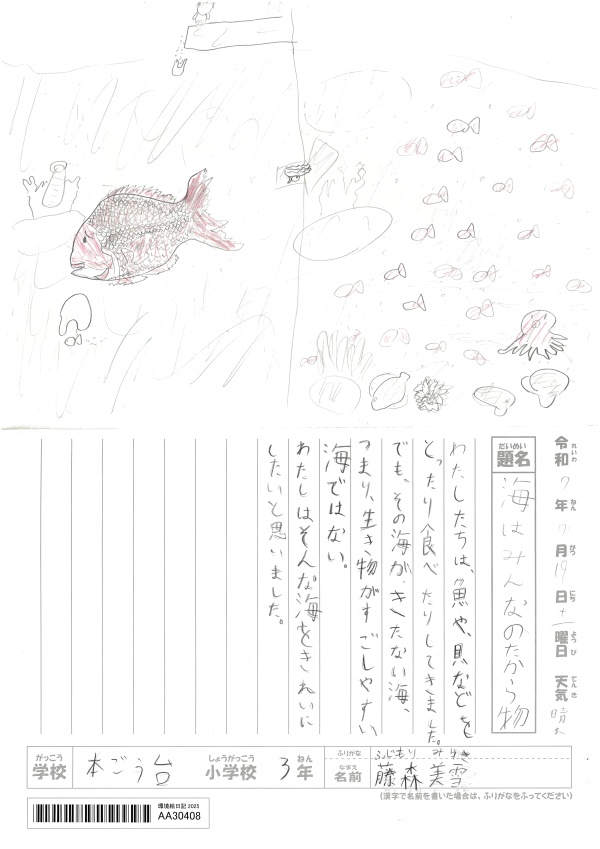 令和7年7月19日土曜日 天気 晴れ
れいわ ねん がつ にち ようび てんき
だいめい
題名 海はみんなのたから物
わたしたちは、魚や、貝などを
とったり食べたりしてきました。
でも、その海が、きたない海、
つまり、生き物がすごしやすい
海ではない。
わたしはそんな海をきれいに
したいと思いました。
がっこう しょうがっこう ねん
学校 本ごう台 小学校 3年
ふりがな ふじもり みゆき
なまえ
名前 藤森美雪
(漢字で名前を書いた場合は、ふりがなをふってください)
環境絵日記 2025
AA30408